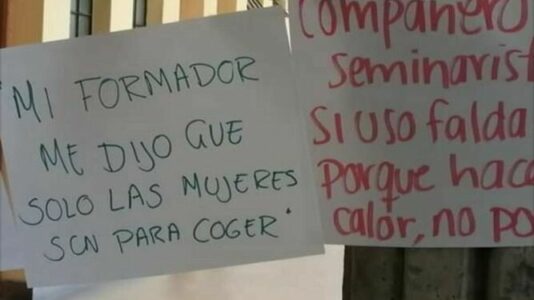 "MI FORMADOR
ME DIJO QUE
SOLO LAS MUJERES
SON PARA COGER"
Compañero
seminarist
Si uso falda
Porque hace
calor, no po